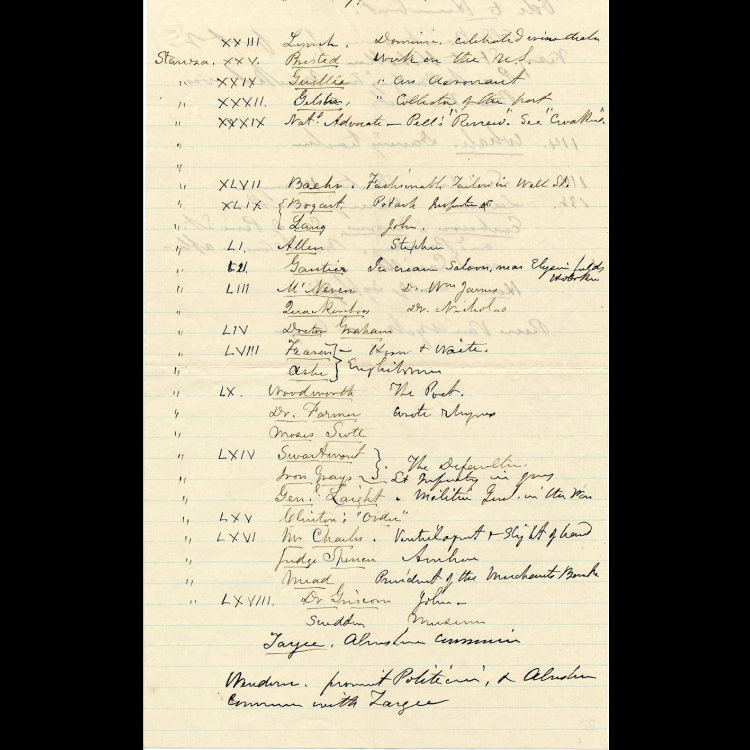 XXIII Lynch, Dominic. celebrated wine dealer
Stanza. XXV. Bristed work on the U.S.
" XXIX Guillé " an aeronaut
" XXXII. Gelston, " Collector of the port
" XXXIX Natl. Advocate — Pell's "Review." See "Croakers".
"
" XLVII Baehr. Fashionable Tailor in Wall St.
" XLIX { Bogart. Potash Inspector
" { Lang John.
" LI. Allen Stephen
" LII. Gautier Ice cream Saloon, near Elysian fields
Hoboken
" LIII McNeven Dr. Wm James
" Quackenbos Dr. Nicholas
" LIV Doctor Graham
" LVIII Fearon } — Horn & Waite.
" Ashe } Englishmen
" LX. Woodworth The Poet.
" Dr. Farmer wrote rhymes
" Moses Scott
" LXIV Swartwout } . The Defaulter.
" Iron Grays } Lt Infantry in grey
" Genl. Laight . Militia Genl. in the War
" LXV Clinton's "Order"
" LXVI Mr Charles. Ventriloquist & Slight of hand
" Judge Spencer Ambrose
" Mead President of the Merchants Bank
" LXVIII. Dr Griscom John —
Scudder Museum
Targee. Alms house
with Targee